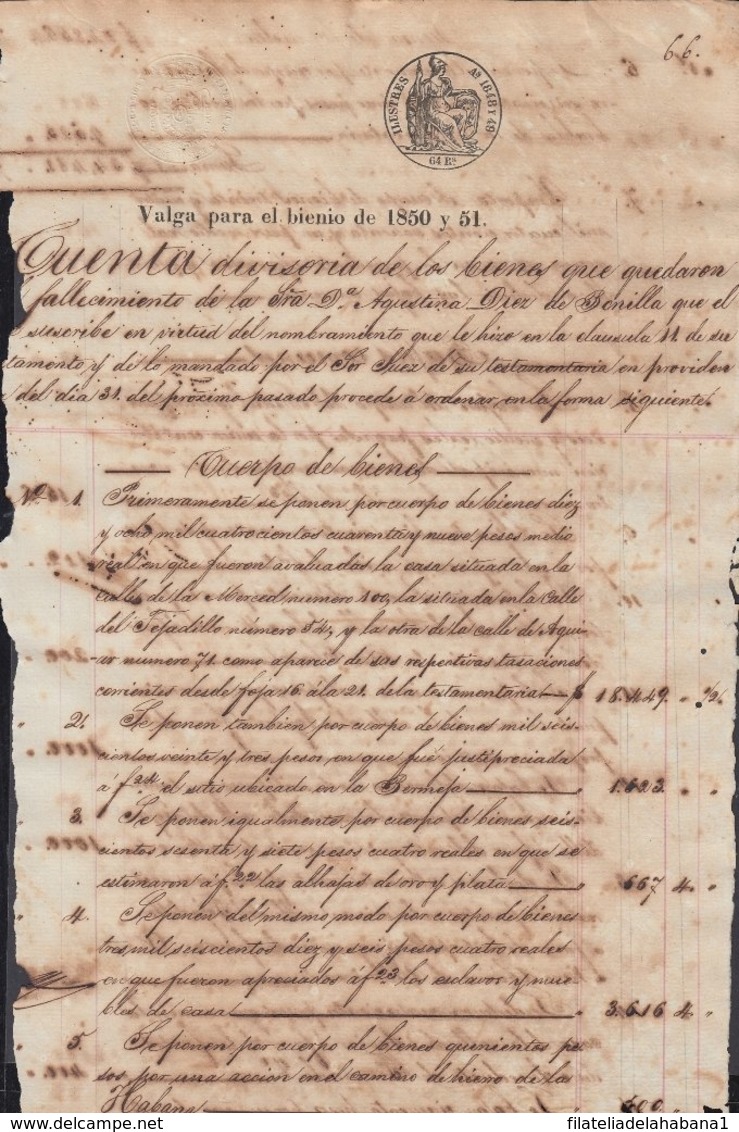 66.
ILESTRES Aˢ 1848 Y 49
64 Rˢ
Valga para el bienio de 1850 y 51.
Cuenta divisoria de los bienes que quedaron
fallecimiento de la Sra Dª Agustina Diez de Bonilla que el
suscribe en virtud del nombramiento que le hizo en la clausula 11. de su
tamento y de lo mandado por el Sor Juez de su testamentaria en providen
del dia 31. del proximo pasado procede á ordenar, en la forma siguiente.
Cuerpo de bienes
Nº 1. Primeramente se ponen por cuerpo de bienes diez
y ocho mil cuatrocientos cuarenta y nueve pesos medio
real en que fueron avaluadas la casa situada en la
calle de la Merced numero 100, la situada en la Calle
del Tejadillo número 54, y la otra de la calle de Agui-
ar numero 71. como aparece de sus respectivas tasaciones
corrientes desde foja 16. á la 21. de la testamentaria — $ 18.449. „ ½.
„ 2. Se ponen tambien por cuerpo de bienes mil seis-
cientos veinte y tres pesos en que fué justipreciada
á f. 24. el sitio ubicado en la Bermeja — „ 1.623. „ „
„ 3. Se ponen igualmente por cuerpo de bienes seis-
cientos sesenta y siete pesos cuatro reales en que se
estimaron á f. 22 las alhajas de oro y plata — „ 667 4. „
„ 4. Se ponen del mismo modo por cuerpo de bienes
tres mil seiscientos diez y seis pesos cuatro reales
en que fueron apreciados á f. 23 los esclavos y mue-
bles de casa — „ 3.616 4. „
„ 5. Se ponen por cuerpo de bienes quinientos pe-
sos por una accion en el camino de hierro de la
Habana — „ 500 „
© delcampe.net
filateliadelahabana1